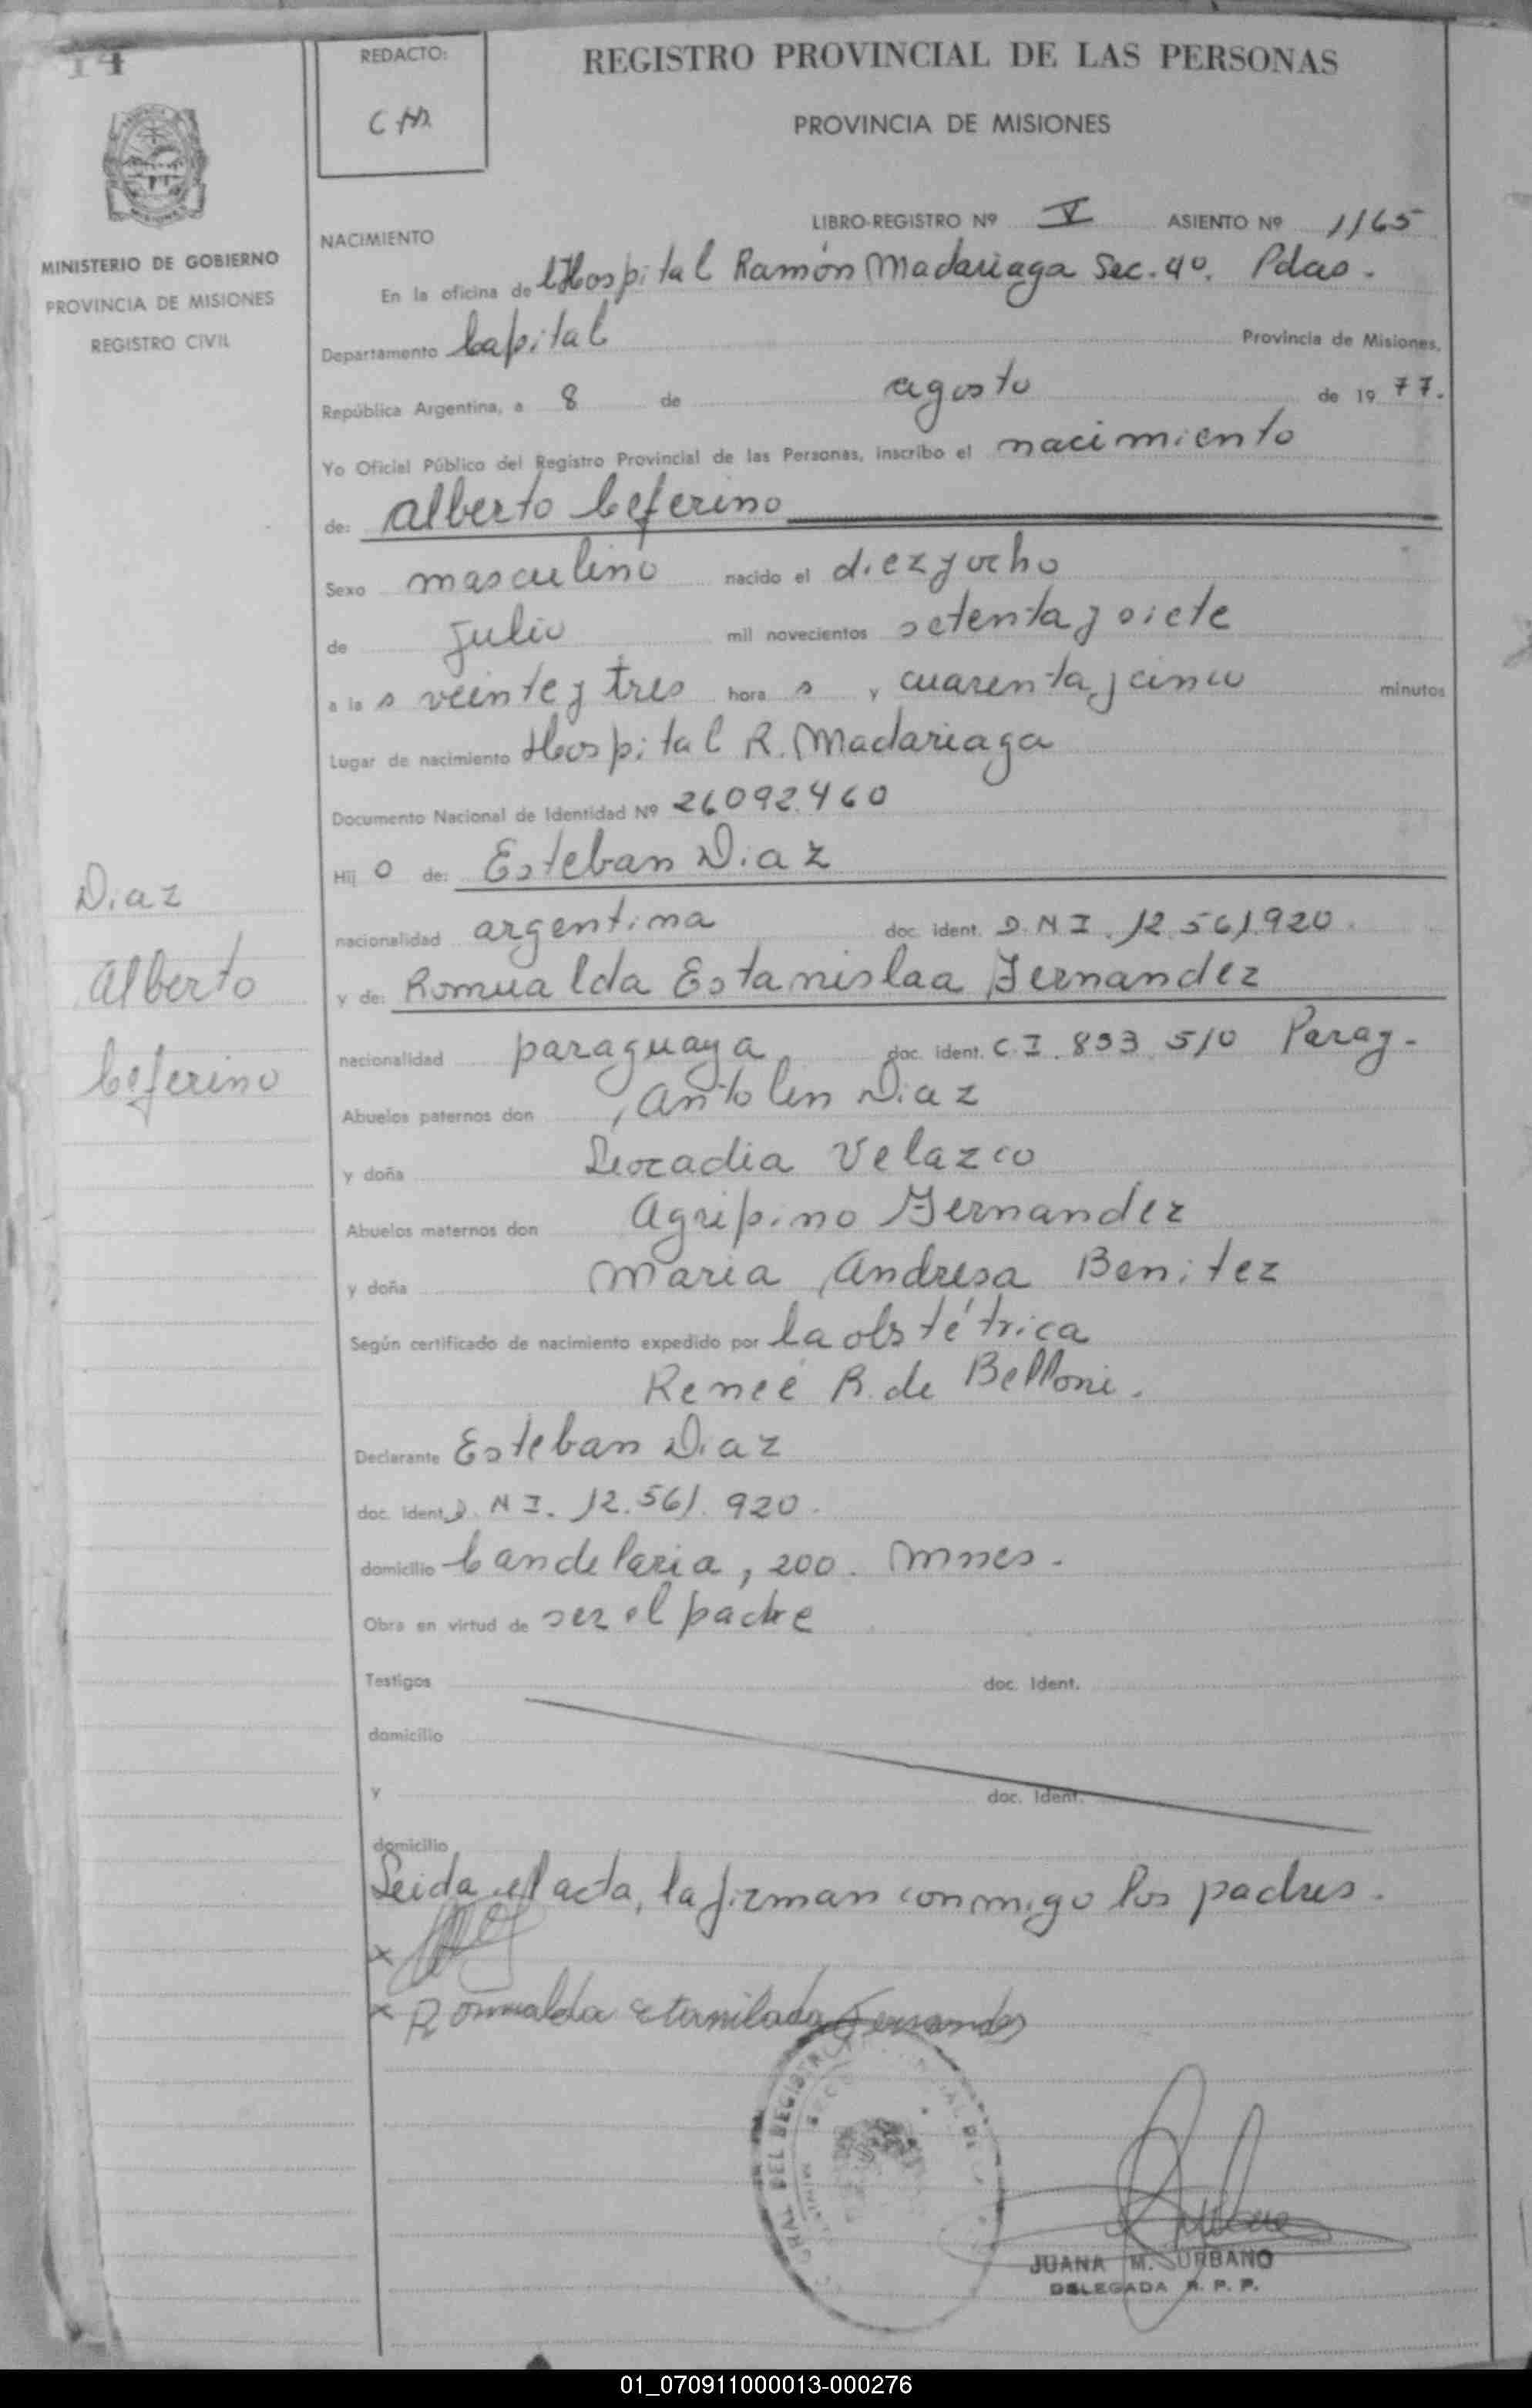 14
REDACTO:
REGISTRO PROVINCIAL DE LAS PERSONAS
PROVINCIA DE MISIONES
MINISTERIO DE GOBIERNO
PROVINCIA DE MISIONES
REGISTRO CIVIL
LIBRO-REGISTRO Nº V ASIENTO Nº 1165
NACIMIENTO
En la oficina de Hospital Ramón Madariaga Sec. 4º. Pdas.
Departamento Capital Provincia de Misiones,
República Argentina, a 8 de agosto de 19 77.
Yo Oficial Público del Registro Provincial de las Personas, inscribo el nacimiento
de: Alberto Ceferino
Sexo masculino nacido el diez y ocho
de Julio mil novecientos setenta y siete
a la s veinte y tres hora s y cuarenta y cinco minutos
Lugar de nacimiento Hospital R. Madariaga
Documento Nacional de Identidad Nº 26092.460
Hij o de: Esteban Diaz
nacionalidad argentina doc. ident. D.N.I. 12.561.920.
y de: Romualda Estanislaa Fernandez
nacionalidad paraguaya doc. ident. C.I. 893.510 Parag-
Abuelos paternos don Antolin Diaz
y doña Leocadia Velazco
Abuelos maternos don Agripino Fernandez
y doña Maria Andresa Benitez
Según certificado de nacimiento expedido por la obstétrica
Reneé R. de Belloni.
Declarante Esteban Diaz
doc. ident. D.N.I. 12.561.920.
domicilio Candelaria, 200. Mnes.
Obra en virtud de ser el padre
Testigos doc. Ident.
domicilio
y doc. Ident.
domicilio
Leida el acta, la firman conmigo los padres.
x
x Romualda Fernandez
Diaz
Alberto
Ceferino
DEL REGISTR
JUANA M. URBANO
DELEGADA R. P. P.
01_070911000013-000276